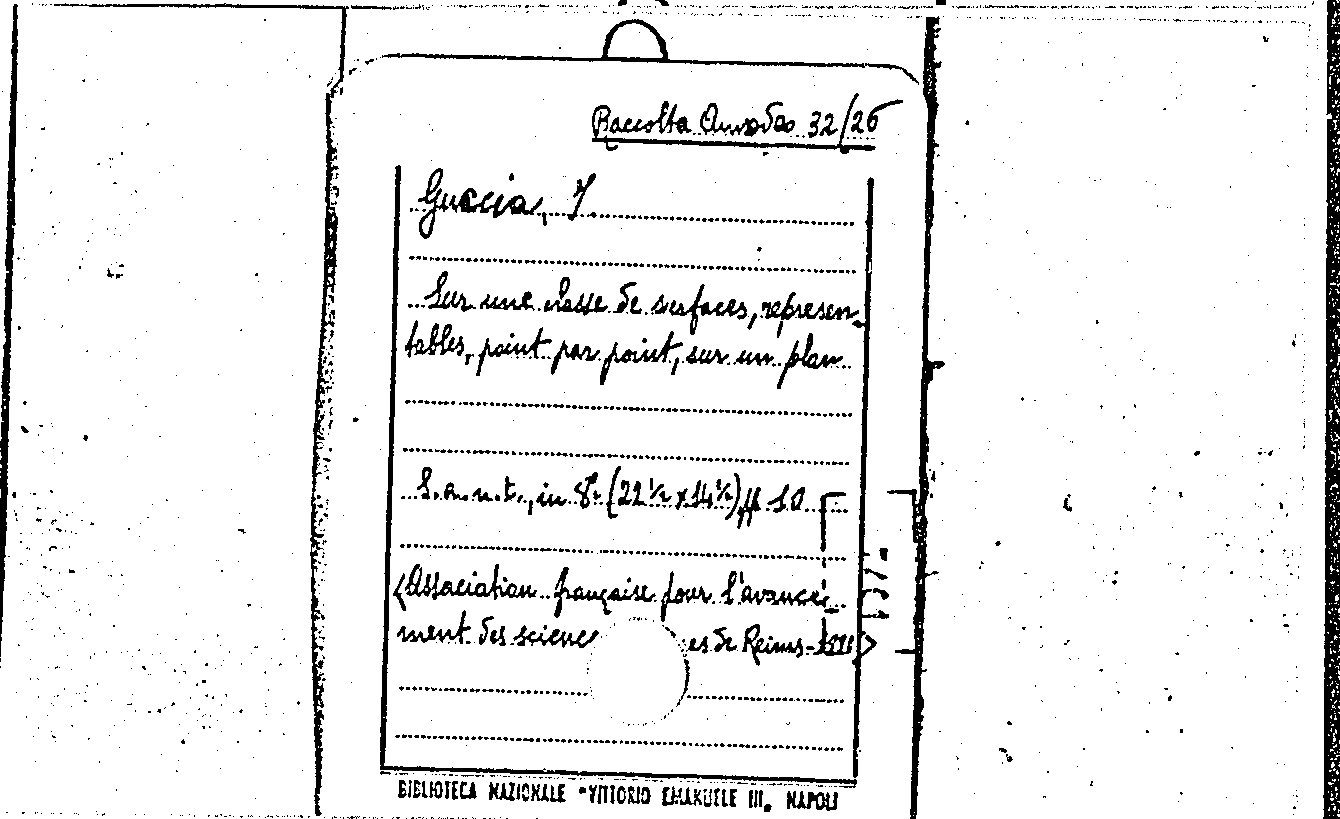 Raccolta Amodeo 32/26
Guccia, J
Sur une classe de surfaces, represen-
tables, point par point, sur un plan
S.a.n.t., in 8º (22 ½ x 14 ½), pp 10
(Association française pour l'avance-
ment des scienc es de Reims-
BIBLIOTECA NAZIONALE "VITTORIO EMANUELE III„ NAPOLI